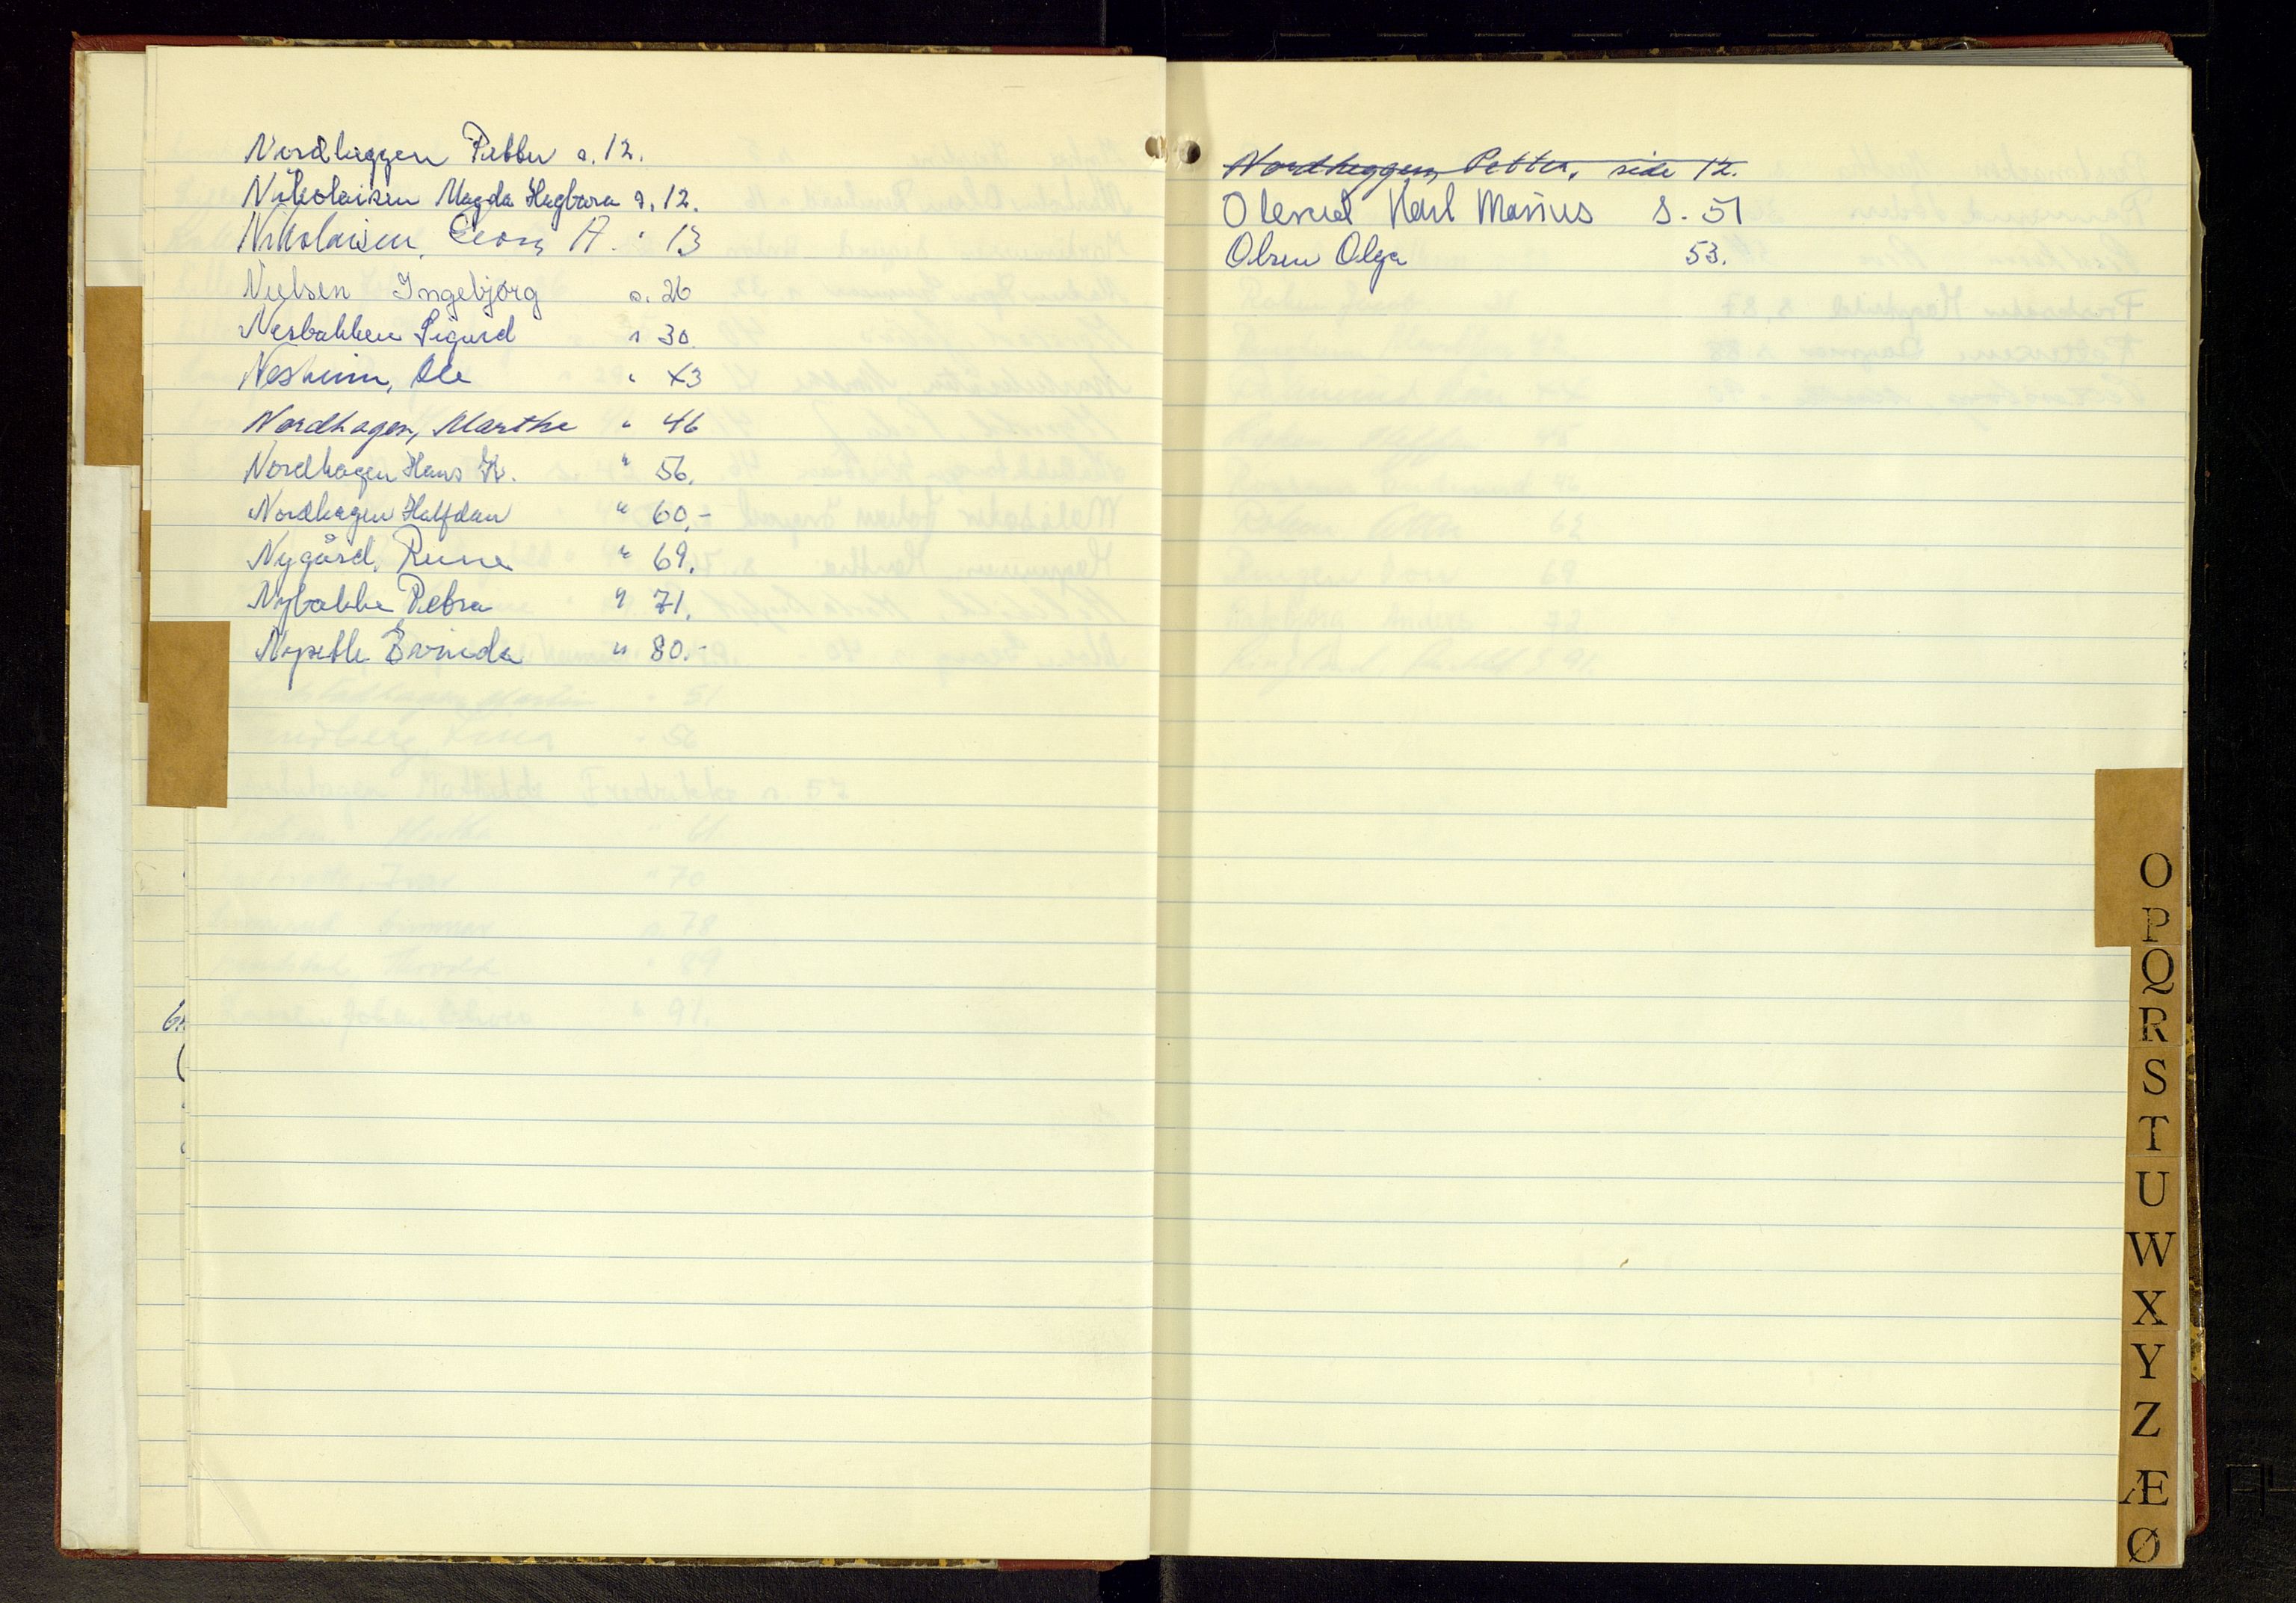 Nordheggen Petter s. 12.
Nikolaisen Magda Hagbara s. 12.
Nikolaisen, Georg A. " 13
Nielsen Ingebjørg s. 26
Nesbakken Sigurd " 30
Nesheim, Ole " 43
Nordhagen, Marthe " 46
Nordhagen Hans K. " 56.
Nordhagen Halfdan " 60.-
Nygård, Rune " 69.
Nybakke Petra " 71.
Nyseth " 80.-
Nordheggen, Petter, side 12.
Olerud Karl Marius S. 51
Olsen Olga 53.
O
P
Q
R
S
T
U
W
X
Y
Z
Æ
Ø